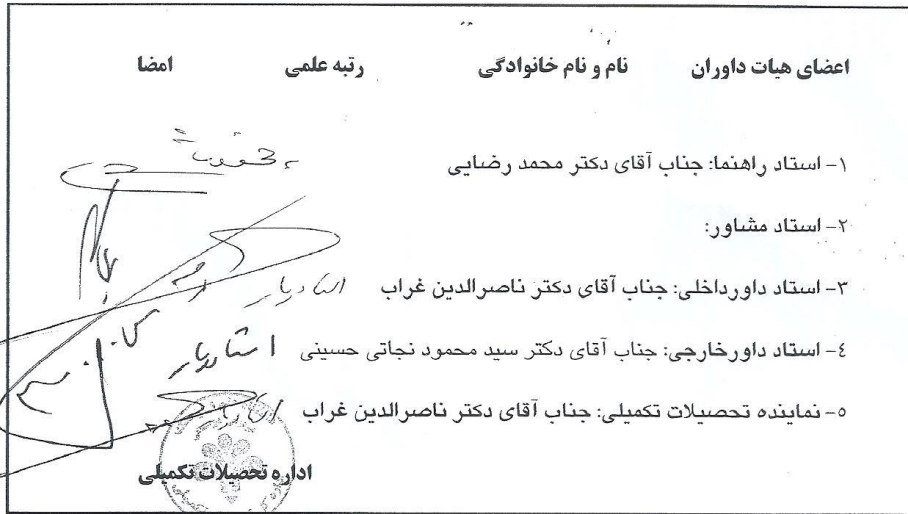 اعضای هیات داوران نام و نام خانوادگی رتبه علمی امضا
۱- استاد راهنما: جناب آقای دکتر محمد رضایی
۲- استاد مشاور:
۳- استاد داورداخلی: جناب آقای دکتر ناصرالدین غراب استادیار
٤- استاد داورخارجی: جناب آقای دکتر سید محمود نجاتی حسینی استادیار
٥- نماینده تحصیلات تکمیلی: جناب آقای دکتر ناصرالدین غراب استادیار
اداره تحصیلات تکمیلی